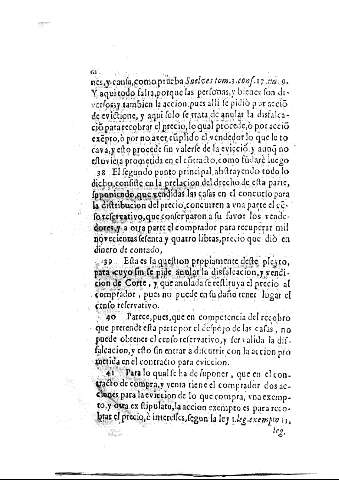 nes, y causa, como prueba Suelves tom. 3. cons. 17. nu. 9.
Y aqui todo falta, porque las personas, y bienes son di-
versos, y tambien la accion, pues alli se pidiò por acciõ
de eviccion, y aqui solo se trata de anular la disfalca-
ciõ para recobrar el precio, lo qual procede, ò por acciõ
exẽpto, ò por no aver cũplido el vendedor lo que le to
cava, y esto procede sin valerse de la evicciõ y aunq̃ no
estuviera prometida en el cõtracto, como fũdarè luego
38 El segundo punto principal, abstrayendo todo lo
dicho, consiste en la prelacion del drecho de esta parte,
suponiendo, que vendidas las casas en el concurso para
la distribucion del precio, concurren a una parte el cẽ-
so reservativo, que conservaron a su favor los vende-
dores, y a otra parte el comprador para recuperar mil
novecientas sesenta y quatro libras, precio que diò en
dinero de contado,
39 Esta es la question propiamente deste pleyto,
para cuyo fin se pide anular la disfalcacion, y vendi-
cion de Corte, y que anulada se restituya el precio al
comprador, pues no puede en su daño tener lugar el
censo reservativo.
40 Parece, pues, que en competencia del recobro
que pretende esta parte por el despojo de las casas, no
puede obtener el censo reservativo, y ser valida la dis-
falcacion, y esto sin entrar a discurrir con la accion pro
metida en el contracto para eviccion.
41 Para lo qual se ha de suponer, que en el con-
tracto de compra, y venta tiene el comprador dos ac-
ciones para la eviccion de lo que compra, una exemp-
to, y otra ex stipulatu, la accion exempto es para reco-
brar el precio, è interesses, segun la ley 1. leg. exempto 11.
leg.